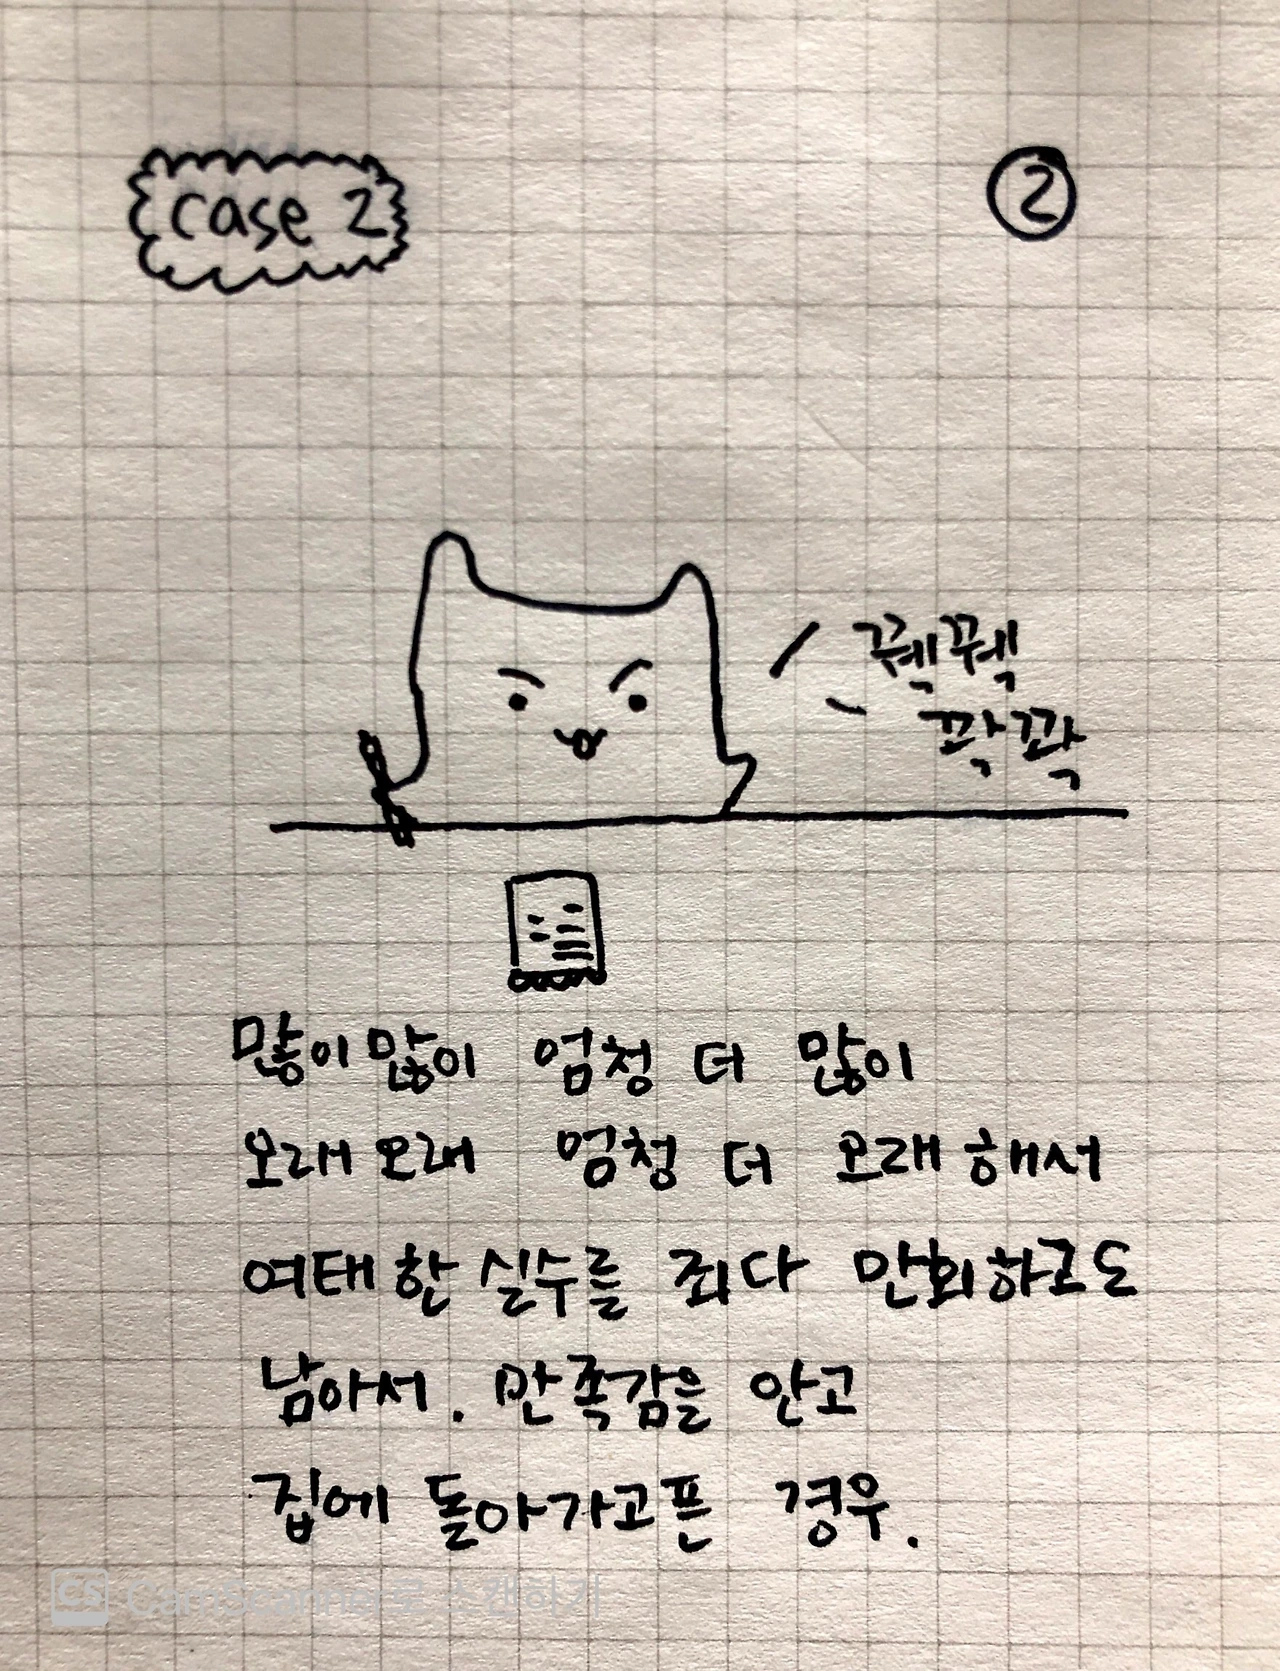 case 2
②
꿱꿱
꽉꽉
많이많이 엄청 더 많이
오래오래 엄청 더 오래해서
여태한 실수를 죄다 만회하고도
남아서. 만족감을 안고
집에 돌아가고픈 경우.
CS CamScanner로 스캔하기